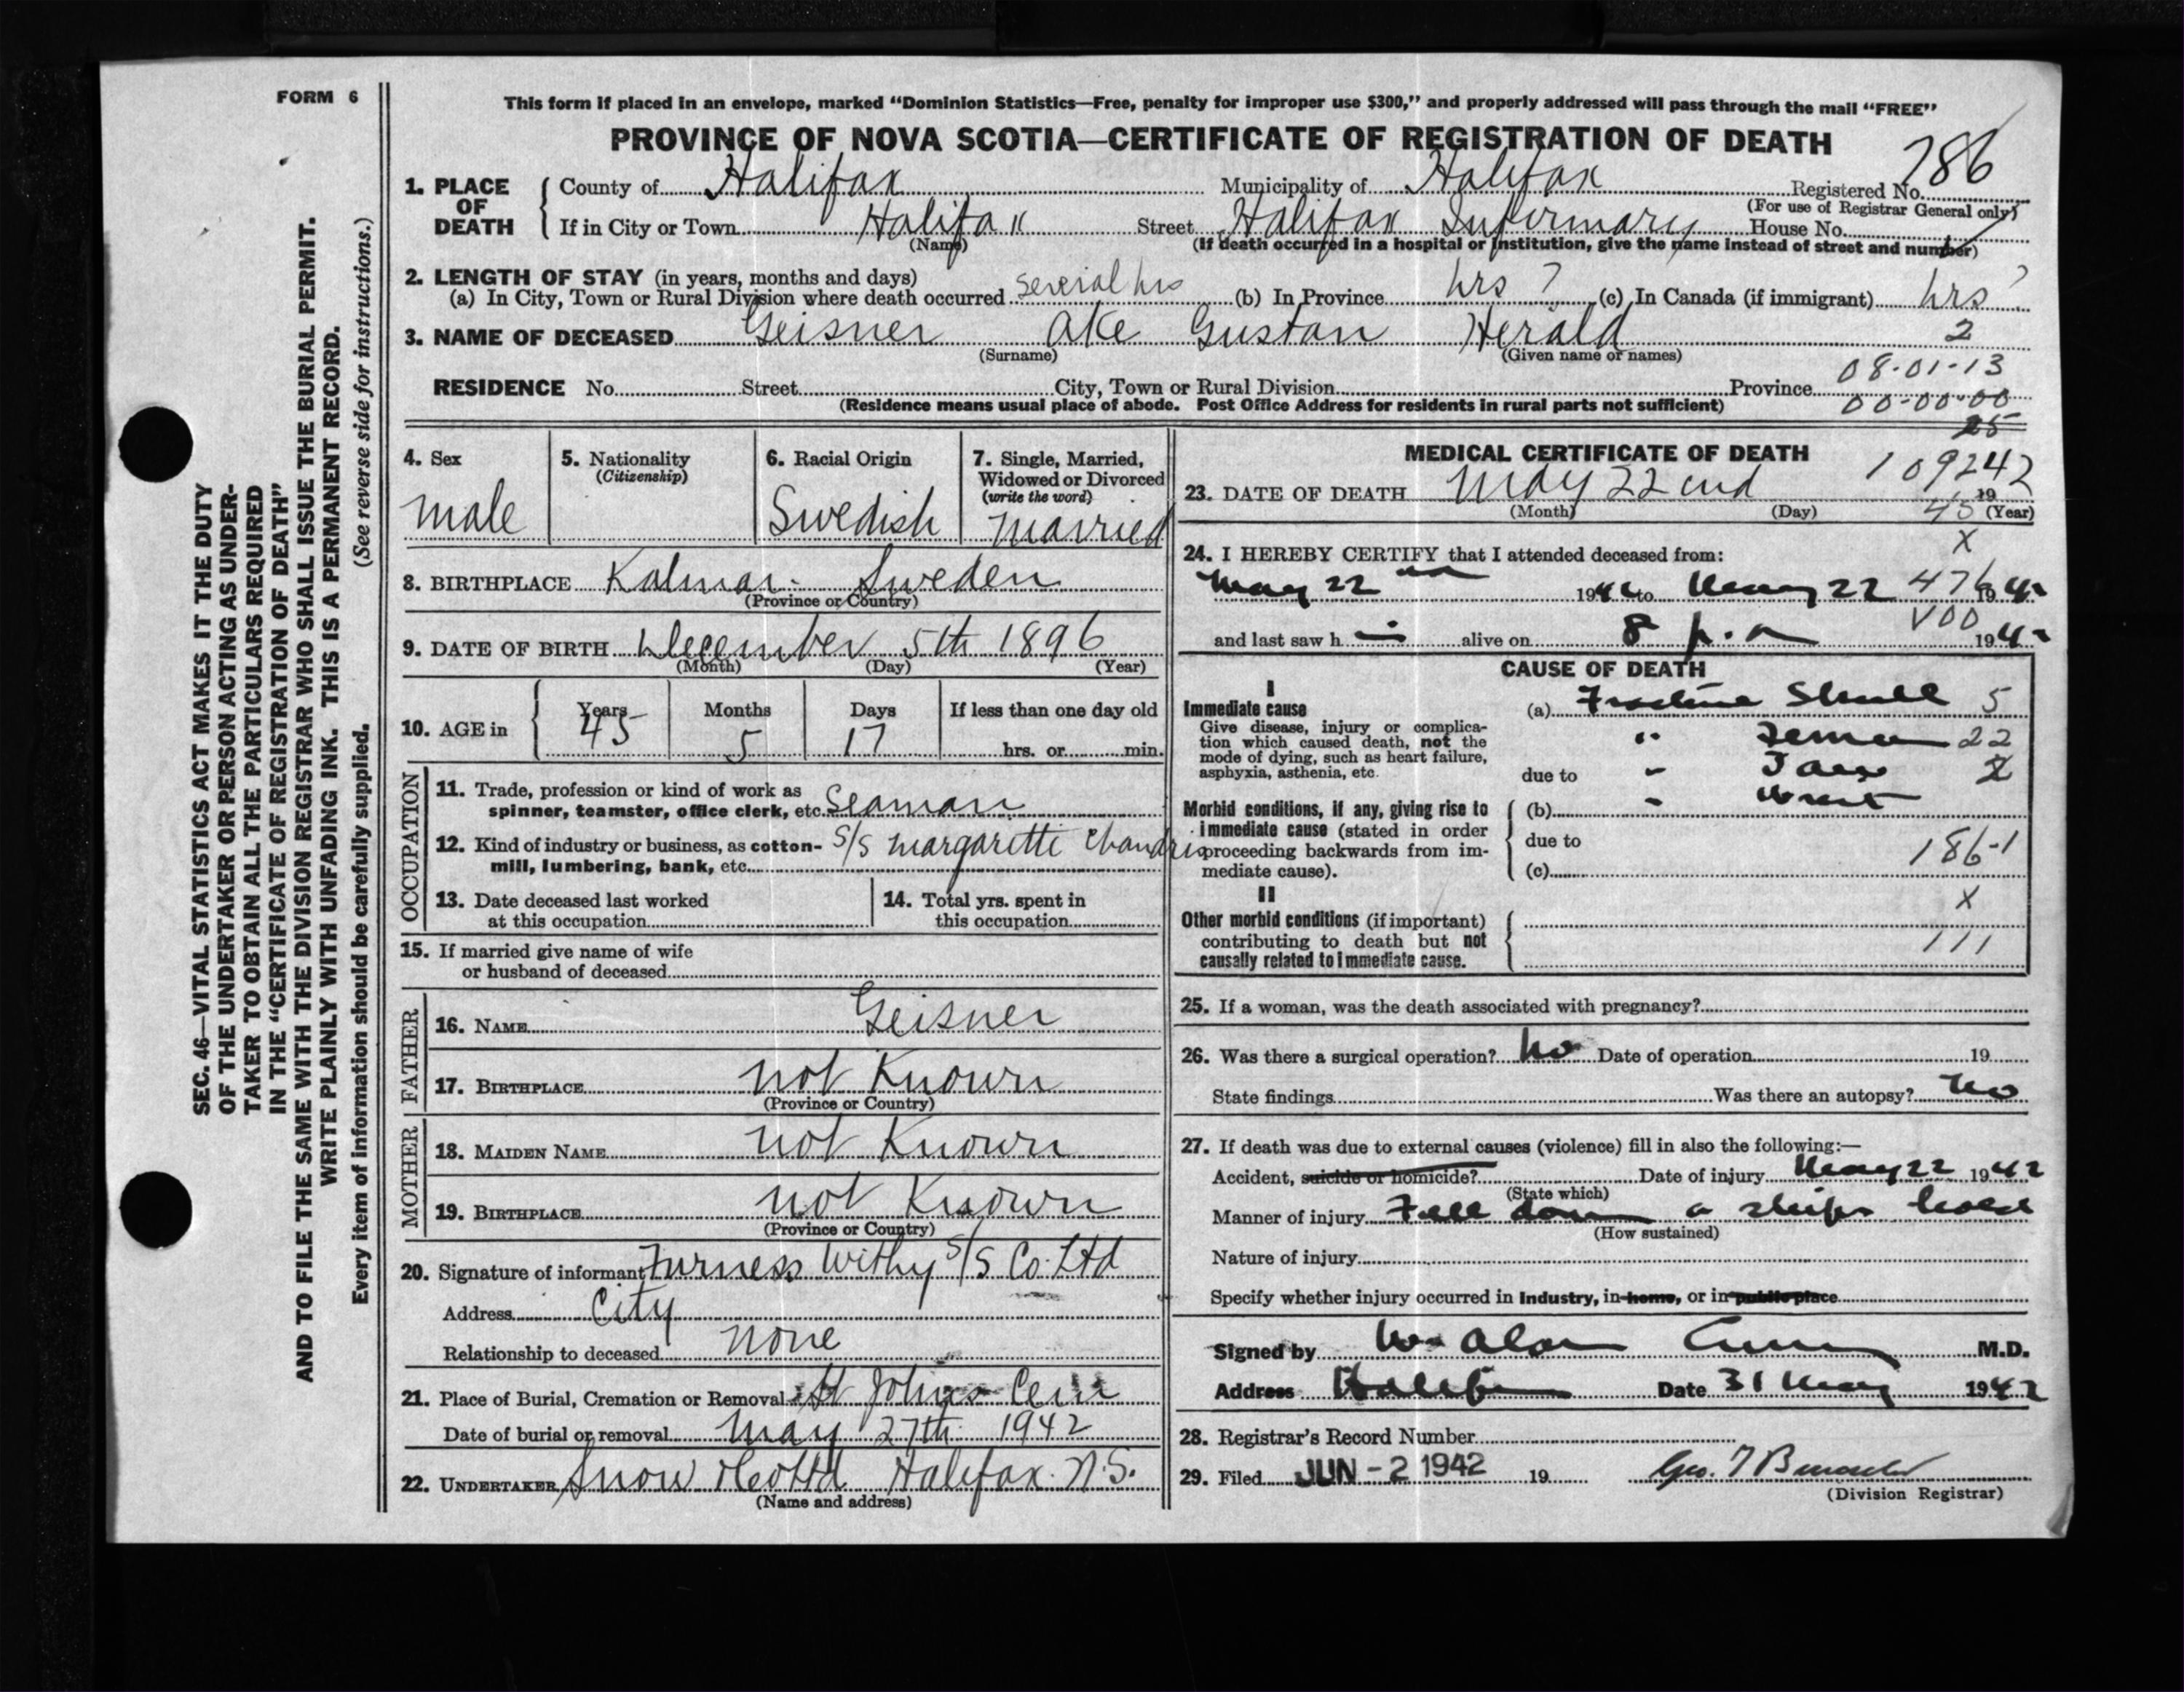 FORM 6
This form if placed in an envelope, marked “Dominion Statistics—Free, penalty for improper use $300,” and properly addressed will pass through the mail “FREE”
PROVINCE OF NOVA SCOTIA—CERTIFICATE OF REGISTRATION OF DEATH
SEC. 46—VITAL STATISTICS ACT MAKES IT THE DUTY
OF THE UNDERTAKER OR PERSON ACTING AS UNDER-
TAKER TO OBTAIN ALL THE PARTICULARS REQUIRED
IN THE “CERTIFICATE OF REGISTRATION OF DEATH”
AND TO FILE THE SAME WITH THE DIVISION REGISTRAR WHO SHALL ISSUE THE BURIAL PERMIT.
WRITE PLAINLY WITH UNFADING INK. THIS IS A PERMANENT RECORD.
Every item of information should be carefully supplied. (See reverse side for instructions.)
1. PLACE OF DEATH
County of Halifax Municipality of Halifax Registered No. 786
(For use of Registrar General only)
If in City or Town Halifax Street Halifax Infirmary House No.
(Name) (If death occurred in a hospital or institution, give the name instead of street and number)
2. LENGTH OF STAY (in years, months and days)
(a) In City, Town or Rural Division where death occurred several hrs (b) In Province hrs ? (c) In Canada (if immigrant) hrs ?
3. NAME OF DECEASED Geisner Ake Gustan Herald 2
(Surname) (Given name or names)
08-01-13
RESIDENCE No. Street City, Town or Rural Division Province 00-00-00
(Residence means usual place of abode. Post Office Address for residents in rural parts not sufficient)
25
4. Sex
male
5. Nationality
(Citizenship)
6. Racial Origin
Swedish
7. Single, Married,
Widowed or Divorced
(write the word)
Married
8. BIRTHPLACE Kalmar - Sweden
(Province or Country)
9. DATE OF BIRTH December 5th 1896
(Month) (Day) (Year)
10. AGE in Years 45 Months 5 Days 17 If less than one day old
hrs. or min.
OCCUPATION
11. Trade, profession or kind of work as
spinner, teamster, office clerk, etc. Seaman
12. Kind of industry or business, as cotton-
mill, lumbering, bank, etc. S/S Margaritti Chandris
13. Date deceased last worked
at this occupation
14. Total yrs. spent in
this occupation
15. If married give name of wife
or husband of deceased
FATHER
16. NAME Geisner
17. BIRTHPLACE not Known
(Province or Country)
MOTHER
18. MAIDEN NAME not Known
19. BIRTHPLACE not Known
(Province or Country)
20. Signature of informant Furness Withy S/S Co. Ltd
Address City
Relationship to deceased none
21. Place of Burial, Cremation or Removal St Johns Cem
Date of burial or removal May 27th 1942
22. UNDERTAKER Snow & Co Ltd Halifax. N.S.
(Name and address)
MEDICAL CERTIFICATE OF DEATH
109242
23. DATE OF DEATH May 22nd 19
(Month) (Day) (Year)
45
X
24. I HEREBY CERTIFY that I attended deceased from:
May 22 nd 1942 to May 22 1942
476
V00
and last saw h im alive on 8 p.m 1942
CAUSE OF DEATH
I
Immediate cause
Give disease, injury or complica-
tion which caused death, not the
mode of dying, such as heart failure,
asphyxia, asthenia, etc.
(a) Fracture Skull 5
" Femur 22
due to " Jaw 2
Morbid conditions, if any, giving rise to
immediate cause (stated in order
proceeding backwards from im-
mediate cause).
(b) " Wrist
due to
(c)
186-1
X
II
Other morbid conditions (if important)
contributing to death but not
causally related to immediate cause.
111
25. If a woman, was the death associated with pregnancy?
26. Was there a surgical operation? No Date of operation 19
State findings Was there an autopsy? No
27. If death was due to external causes (violence) fill in also the following:—
Accident, suicide or homicide? Date of injury May 22 1942
(State which)
Manner of injury Fell down a ships hold
(How sustained)
Nature of injury
Specify whether injury occurred in Industry, in home, or in public place
Signed by W. Alan M.D.
Address Halifax Date 31 May 1942
28. Registrar's Record Number
29. Filed JUN - 2 1942 19 Geo. T
(Division Registrar)